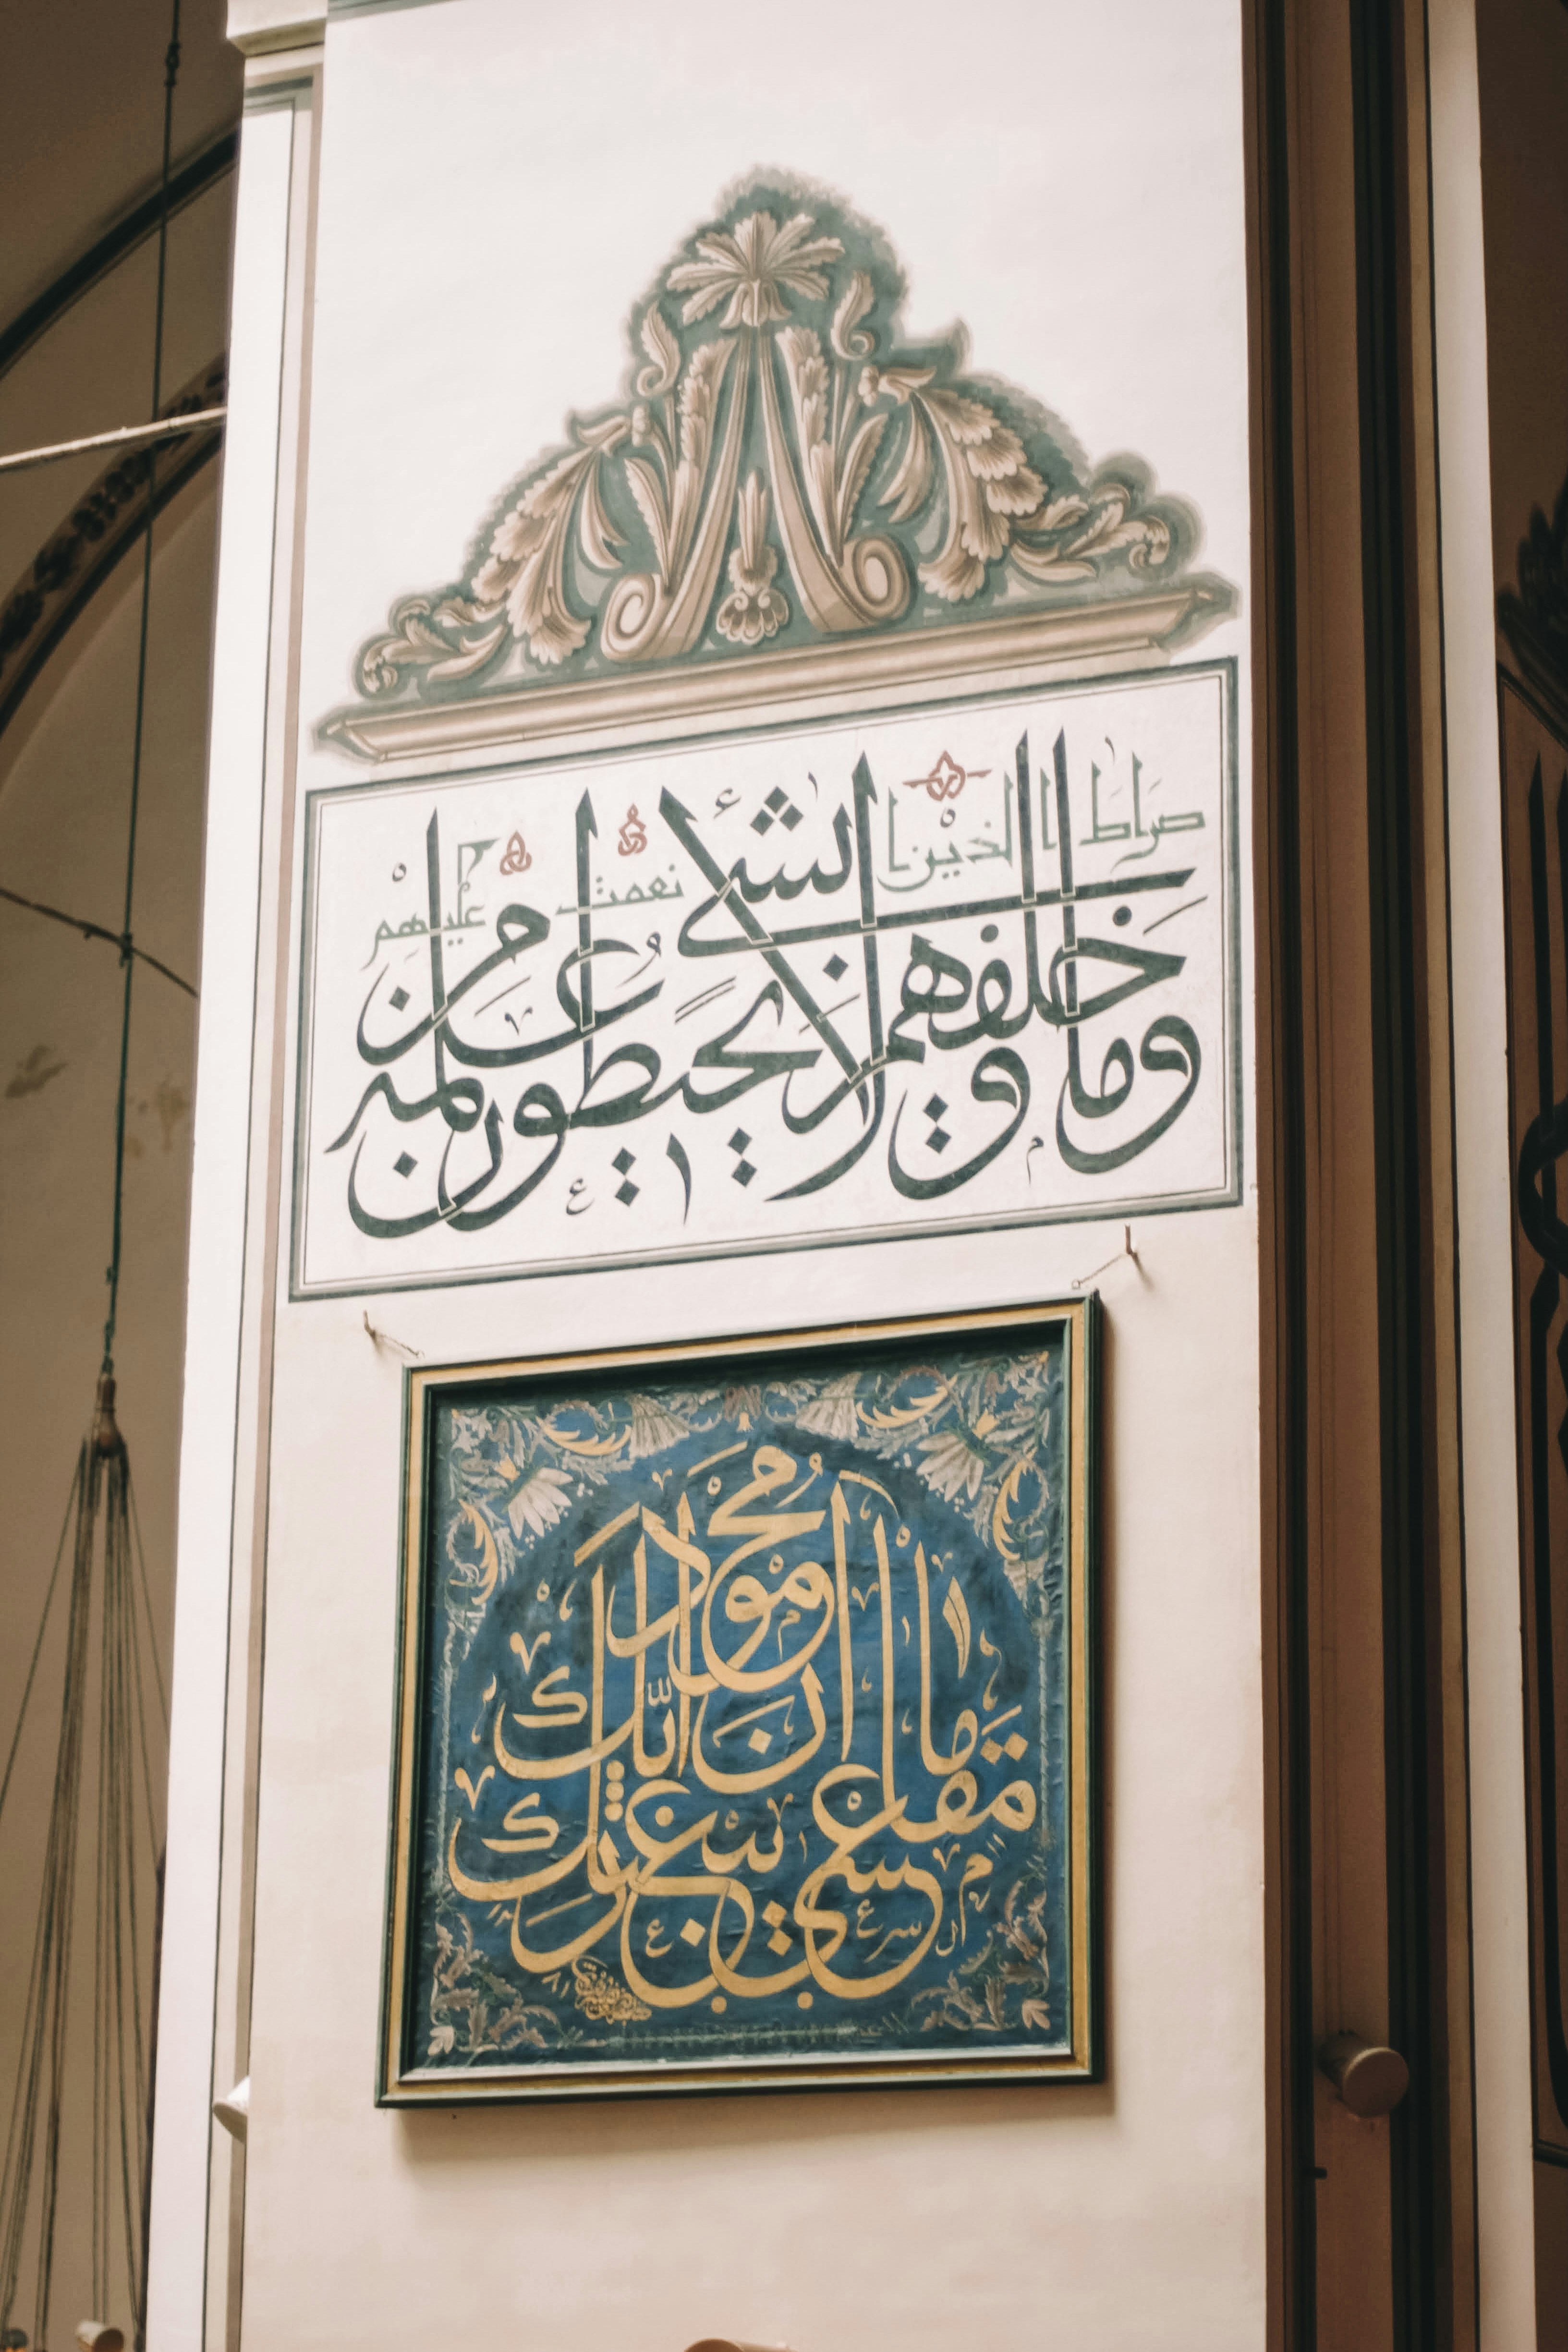 صراط الذين انعمت عليهم
وما خلفهم ولا يحيطون بشئ من علمه
عسى ان يبعثك ربك مقاما محمودا